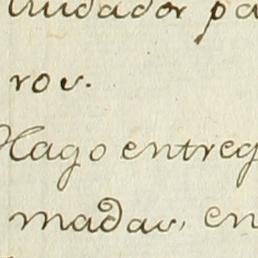 cuidador pa
ros.
Hago entreg
madas, en